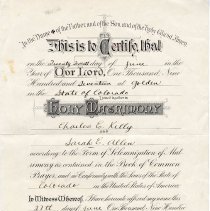 In the Name of the Father, and of the Son, and of the Holy Ghost. Amen.
This is to Certify, that
on the day of June in the
Year of Our Lord, One Thousand Nine
Hundred and Seventeen at Golden
in the State of Colorado
I united together in
Holy Matrimony
Charles E. Kelly
and
Sarah E. Allen
according to the Form of Solemnization of Mat-
rimony as contained in the Book of Common
Prayer; and in Conformity with the Laws of the State of
Colorado in the United States of America.
In Witness Whereof, I have hereunto affixed my name this
day of June One Thousand Nine Hundred